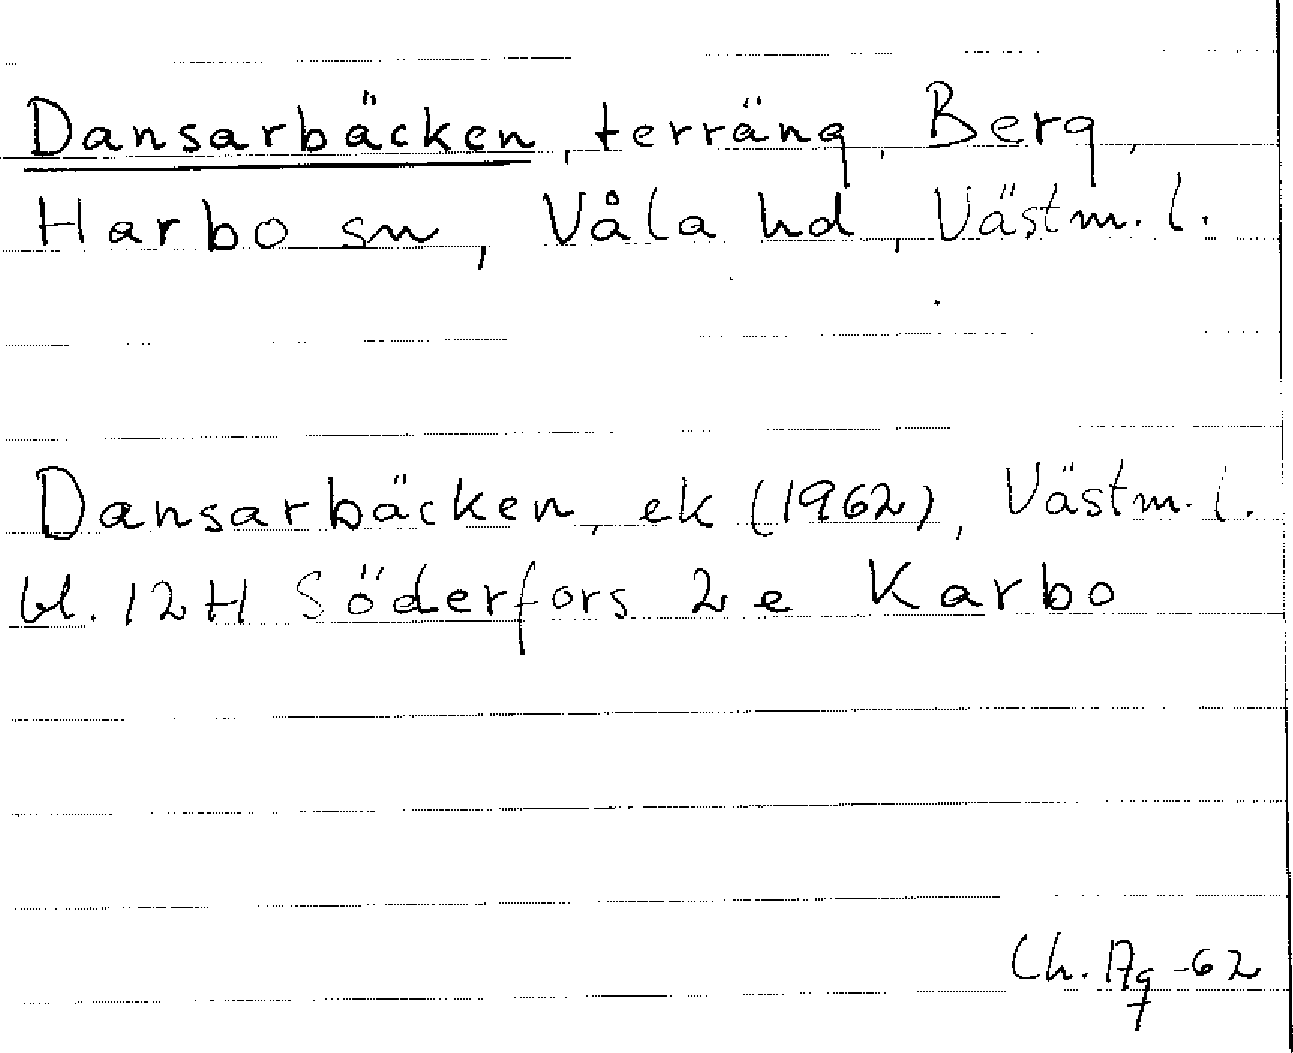 Dansarbäcken, terräng, Berg,
Harbo sn, Våla hd, Västm. l.
Dansarbäcken, ek (1962), Västm. l.
bl. 12H Söderfors 2 e Karbo
Ch. -62